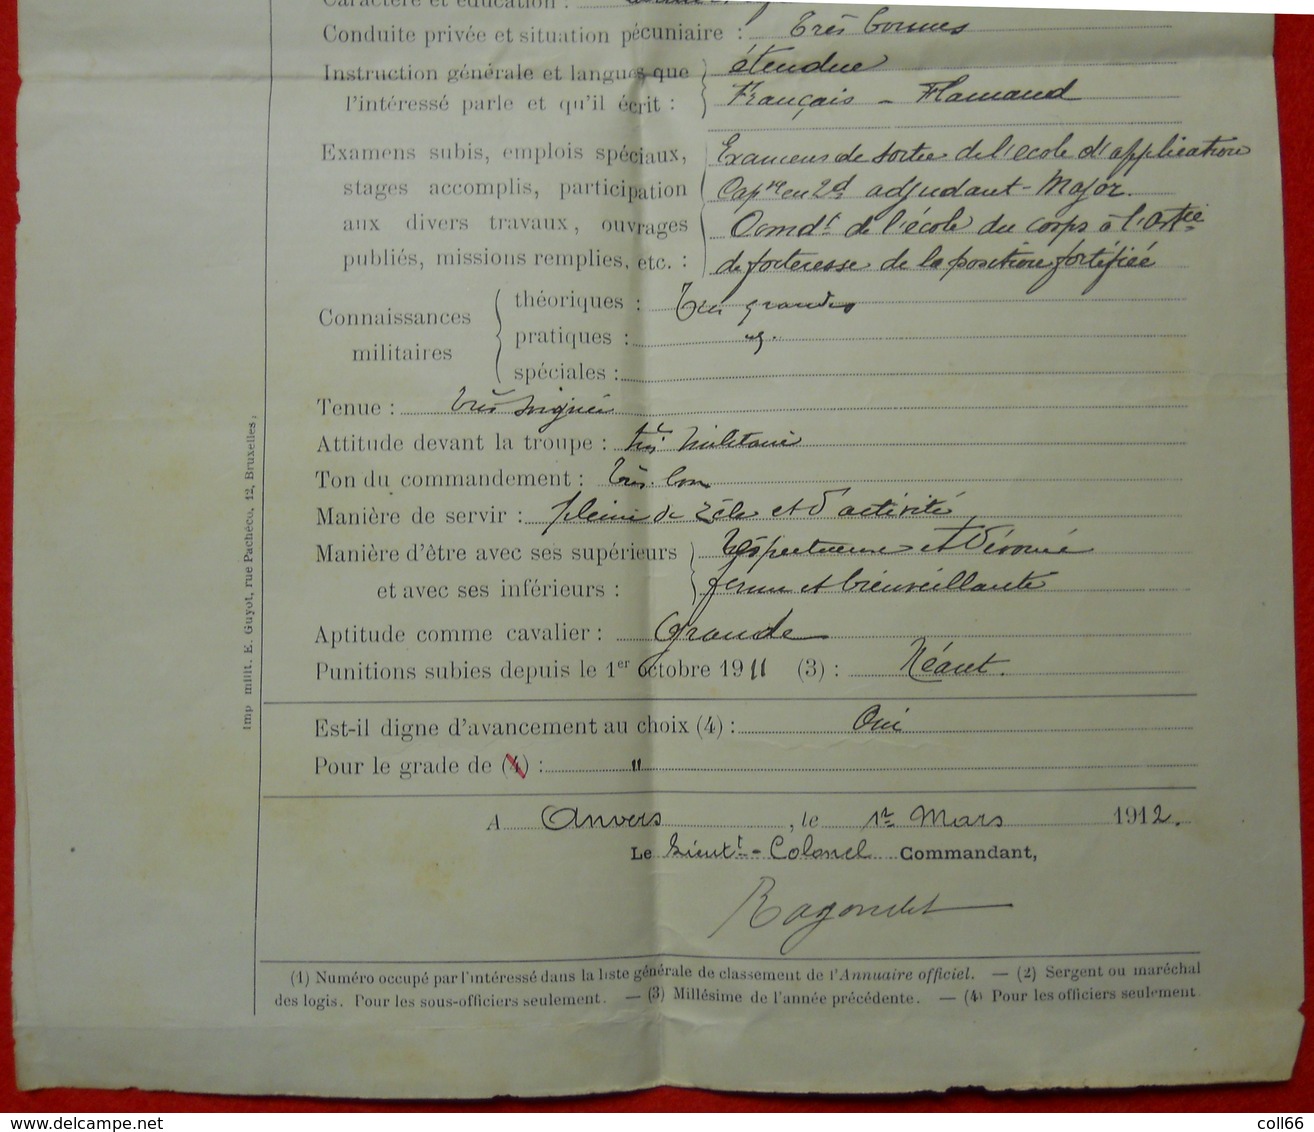 Caractère et éducation :
Conduite privée et situation pécuniaire : très bonnes
Instruction générale et langues que l'intéressé parle et qu'il écrit : étendue
Français - Flamand
Examens subis, emplois spéciaux, Examens de sortie de l'école d'application
stages accomplis, participation Cap ne en 2d adjudant-Major.
aux divers travaux, ouvrages Comdt de l'école du corps à l'Artie
publiés, missions remplies, etc. : de forteresse de la position fortifiée
Connaissances militaires
théoriques : Très grandes
pratiques :
spéciales :
Tenue : très soignée
Attitude devant la troupe : très militaire
Ton du commandement : très bon
Manière de servir : pleine de zèle et d'activité
Manière d'être avec ses supérieurs Respectueuse et dévouée
et avec ses inférieurs : ferme et bienveillante
Aptitude comme cavalier : Grande
Punitions subies depuis le 1er octobre 1911 (3) : Néant.
Est-il digne d'avancement au choix (4) : Oui
Pour le grade de (4) : "
A Anvers, le 1r Mars 1912.
Le Lieutt-Colonel Commandant,
(1) Numéro occupé par l'intéressé dans la liste générale de classement de l'Annuaire officiel. — (2) Sergent ou maréchal
des logis. Pour les sous-officiers seulement. — (3) Millésime de l'année précédente. — (4) Pour les officiers seulement
Imp milit. E. Guyot, rue Pachéco, 12, Bruxelles.
coll66
www.delcampe.net